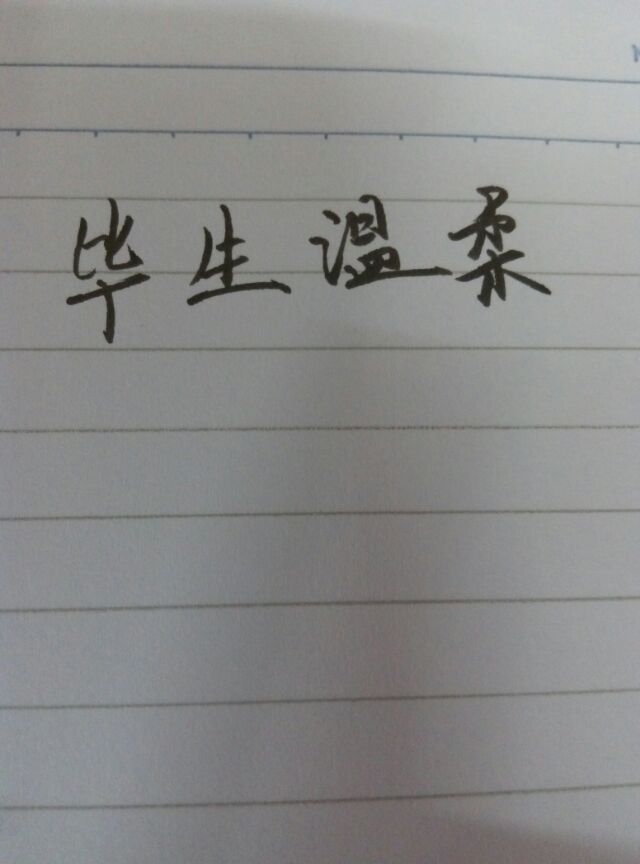 毕生温柔